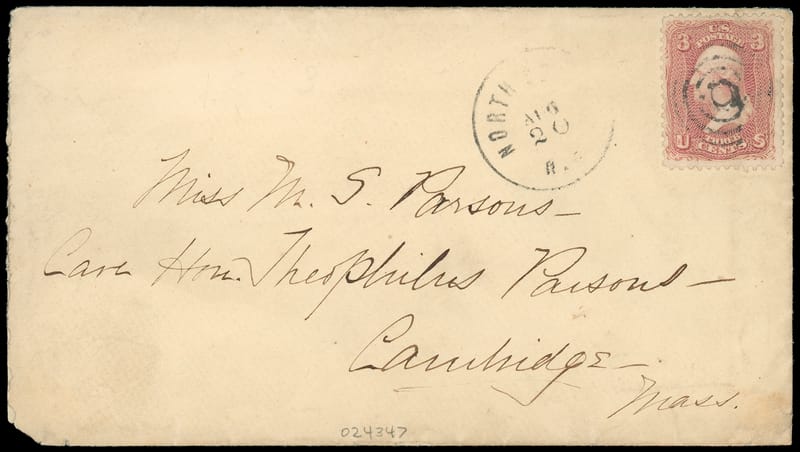 3 U.S. 3
POSTAGE
U THREE S
CENTS
NORTH
AUG
20
Miss M. S. Parsons—
Care Hon. Theophilus Parsons—
Cambridge—
Mass.
024347